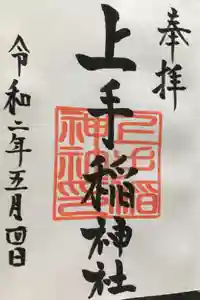 奉拝
上手稲神社
令和二年五月四日